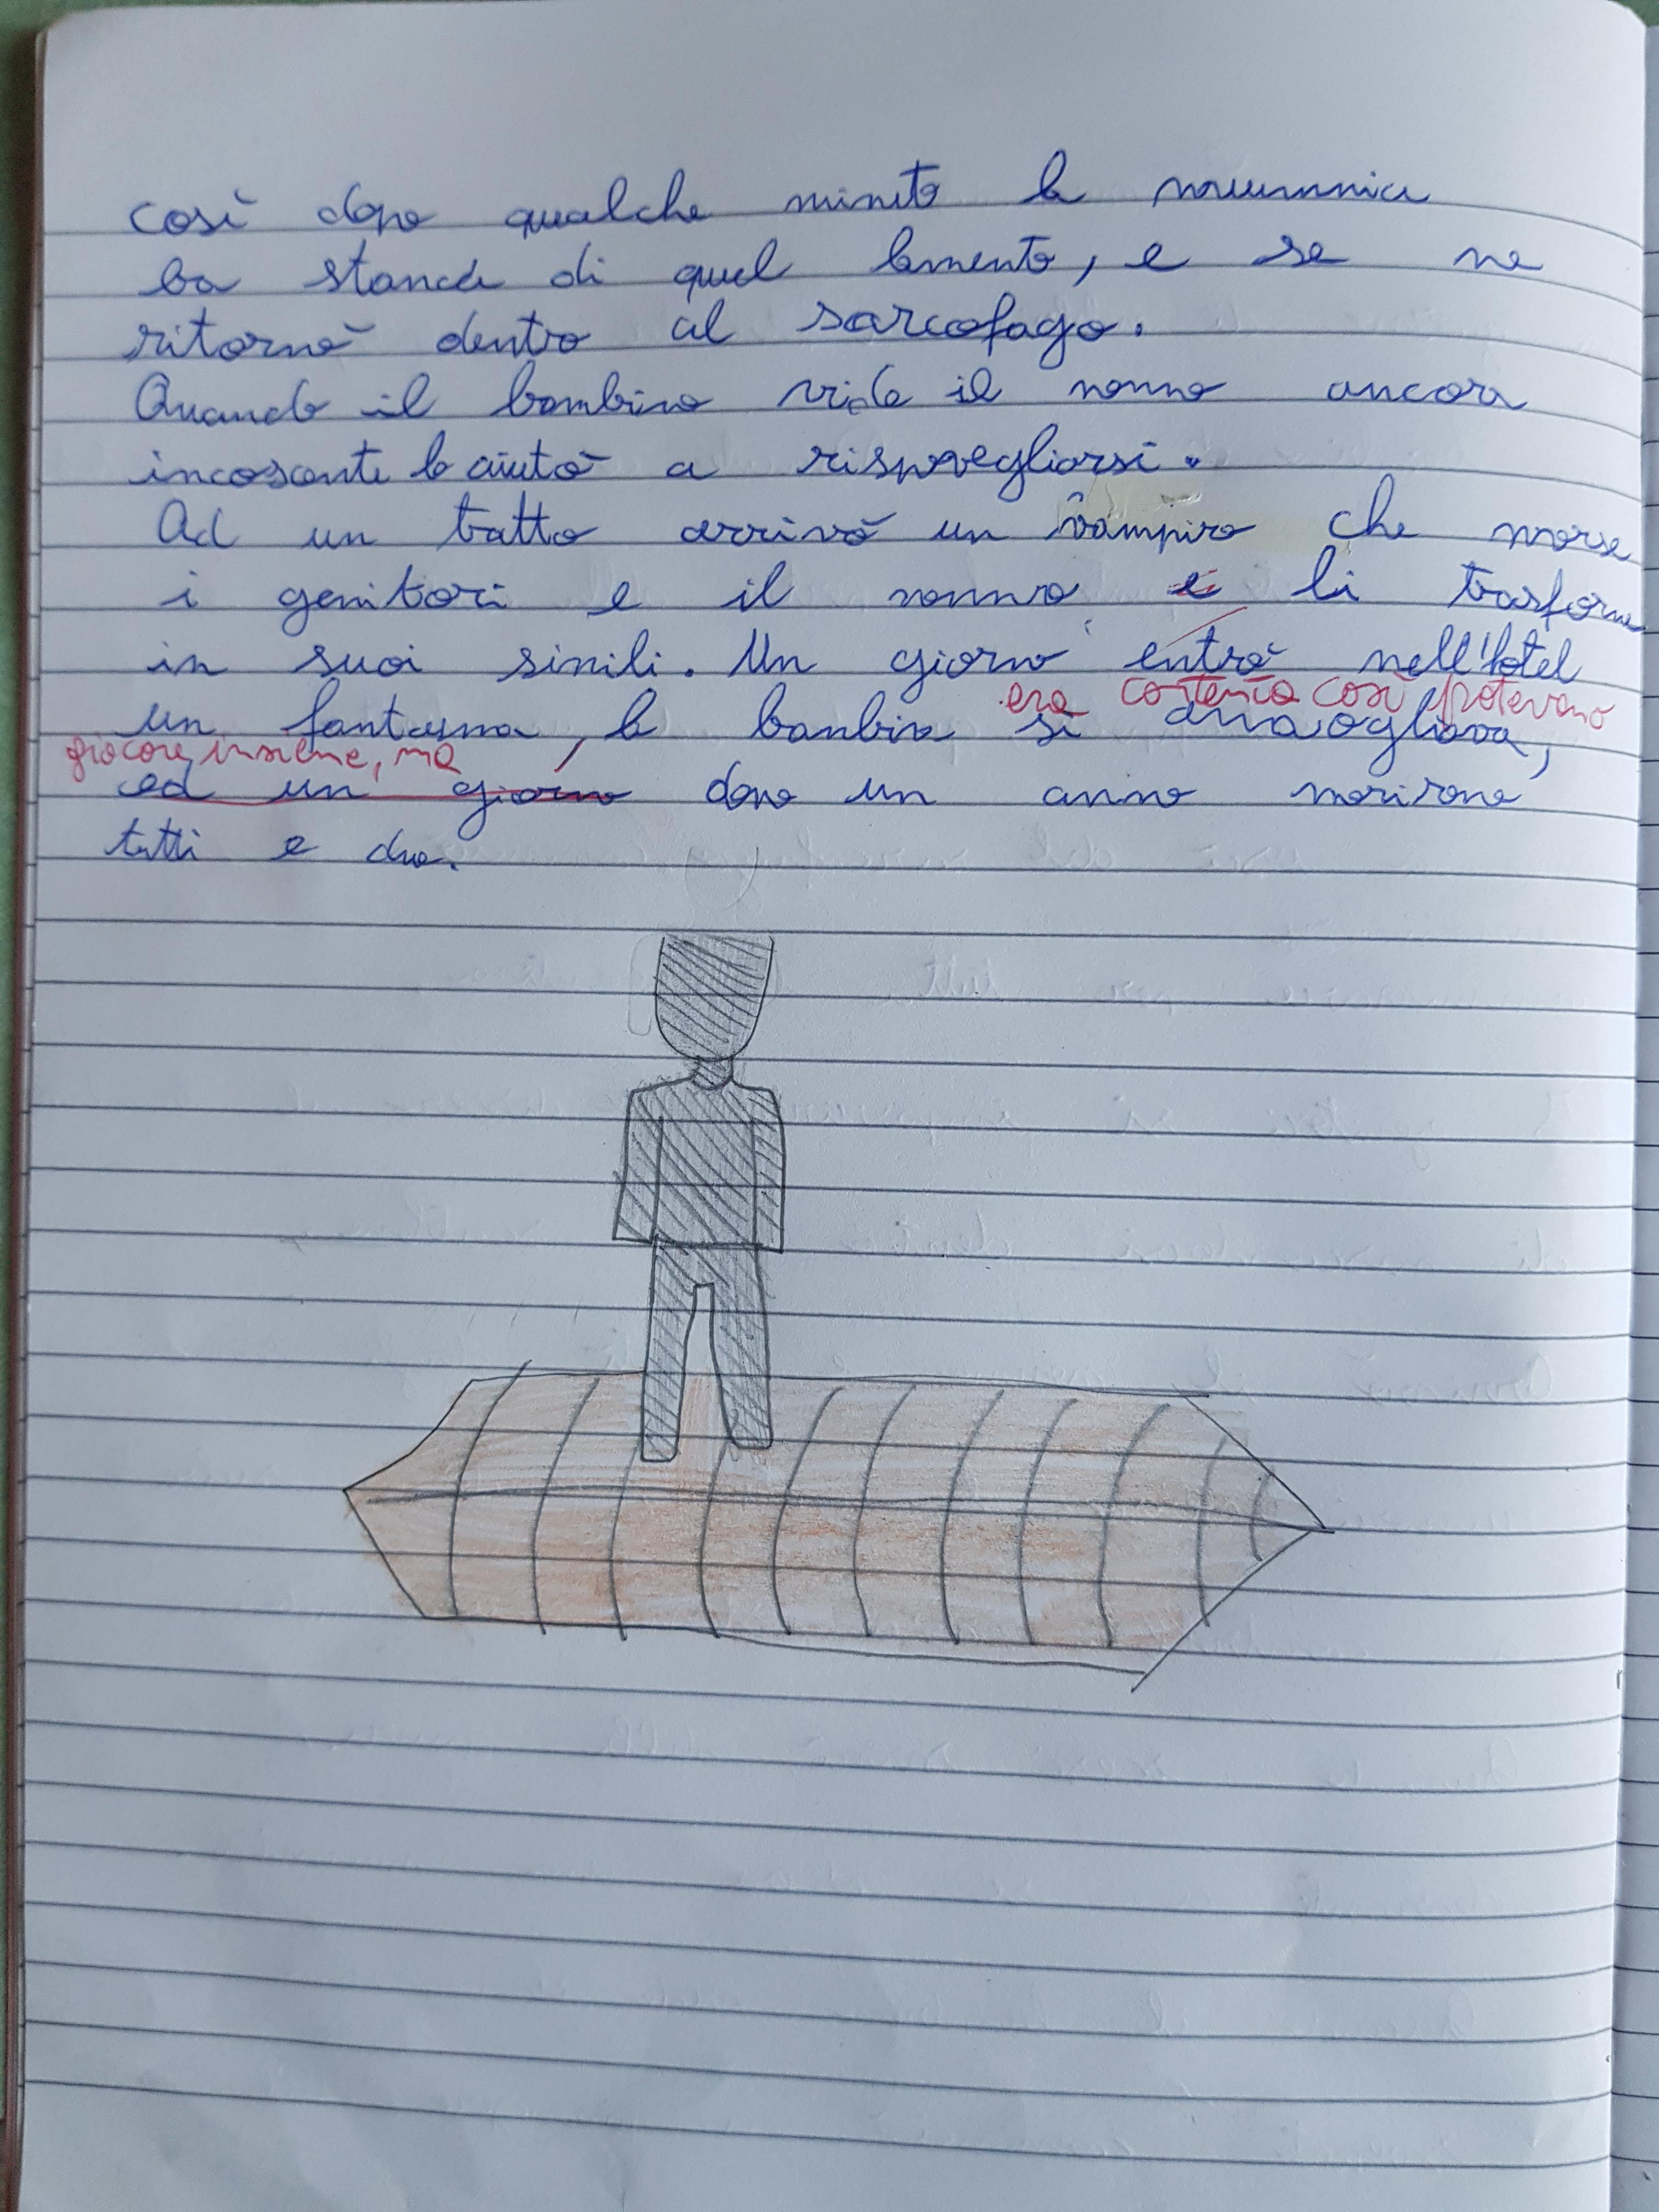 così dopo qualche minuto la mummia
fu stanca di quel lamento, e se ne
ritornò dentro al sarcofago.
Quando il bambino vide il nonno ancora
incosciente lo aiutò a risvegliarsi.
Ad un tratto arrivò un vampiro che morse
i genitori e il nonno e li trasformò
in suoi simili. Un giorno entrò nell'hotel
era contenta così potevano
un fantasma, la bambina si
giocare insieme, ma
ed un giorno dopo un anno morirono
tutti e due.